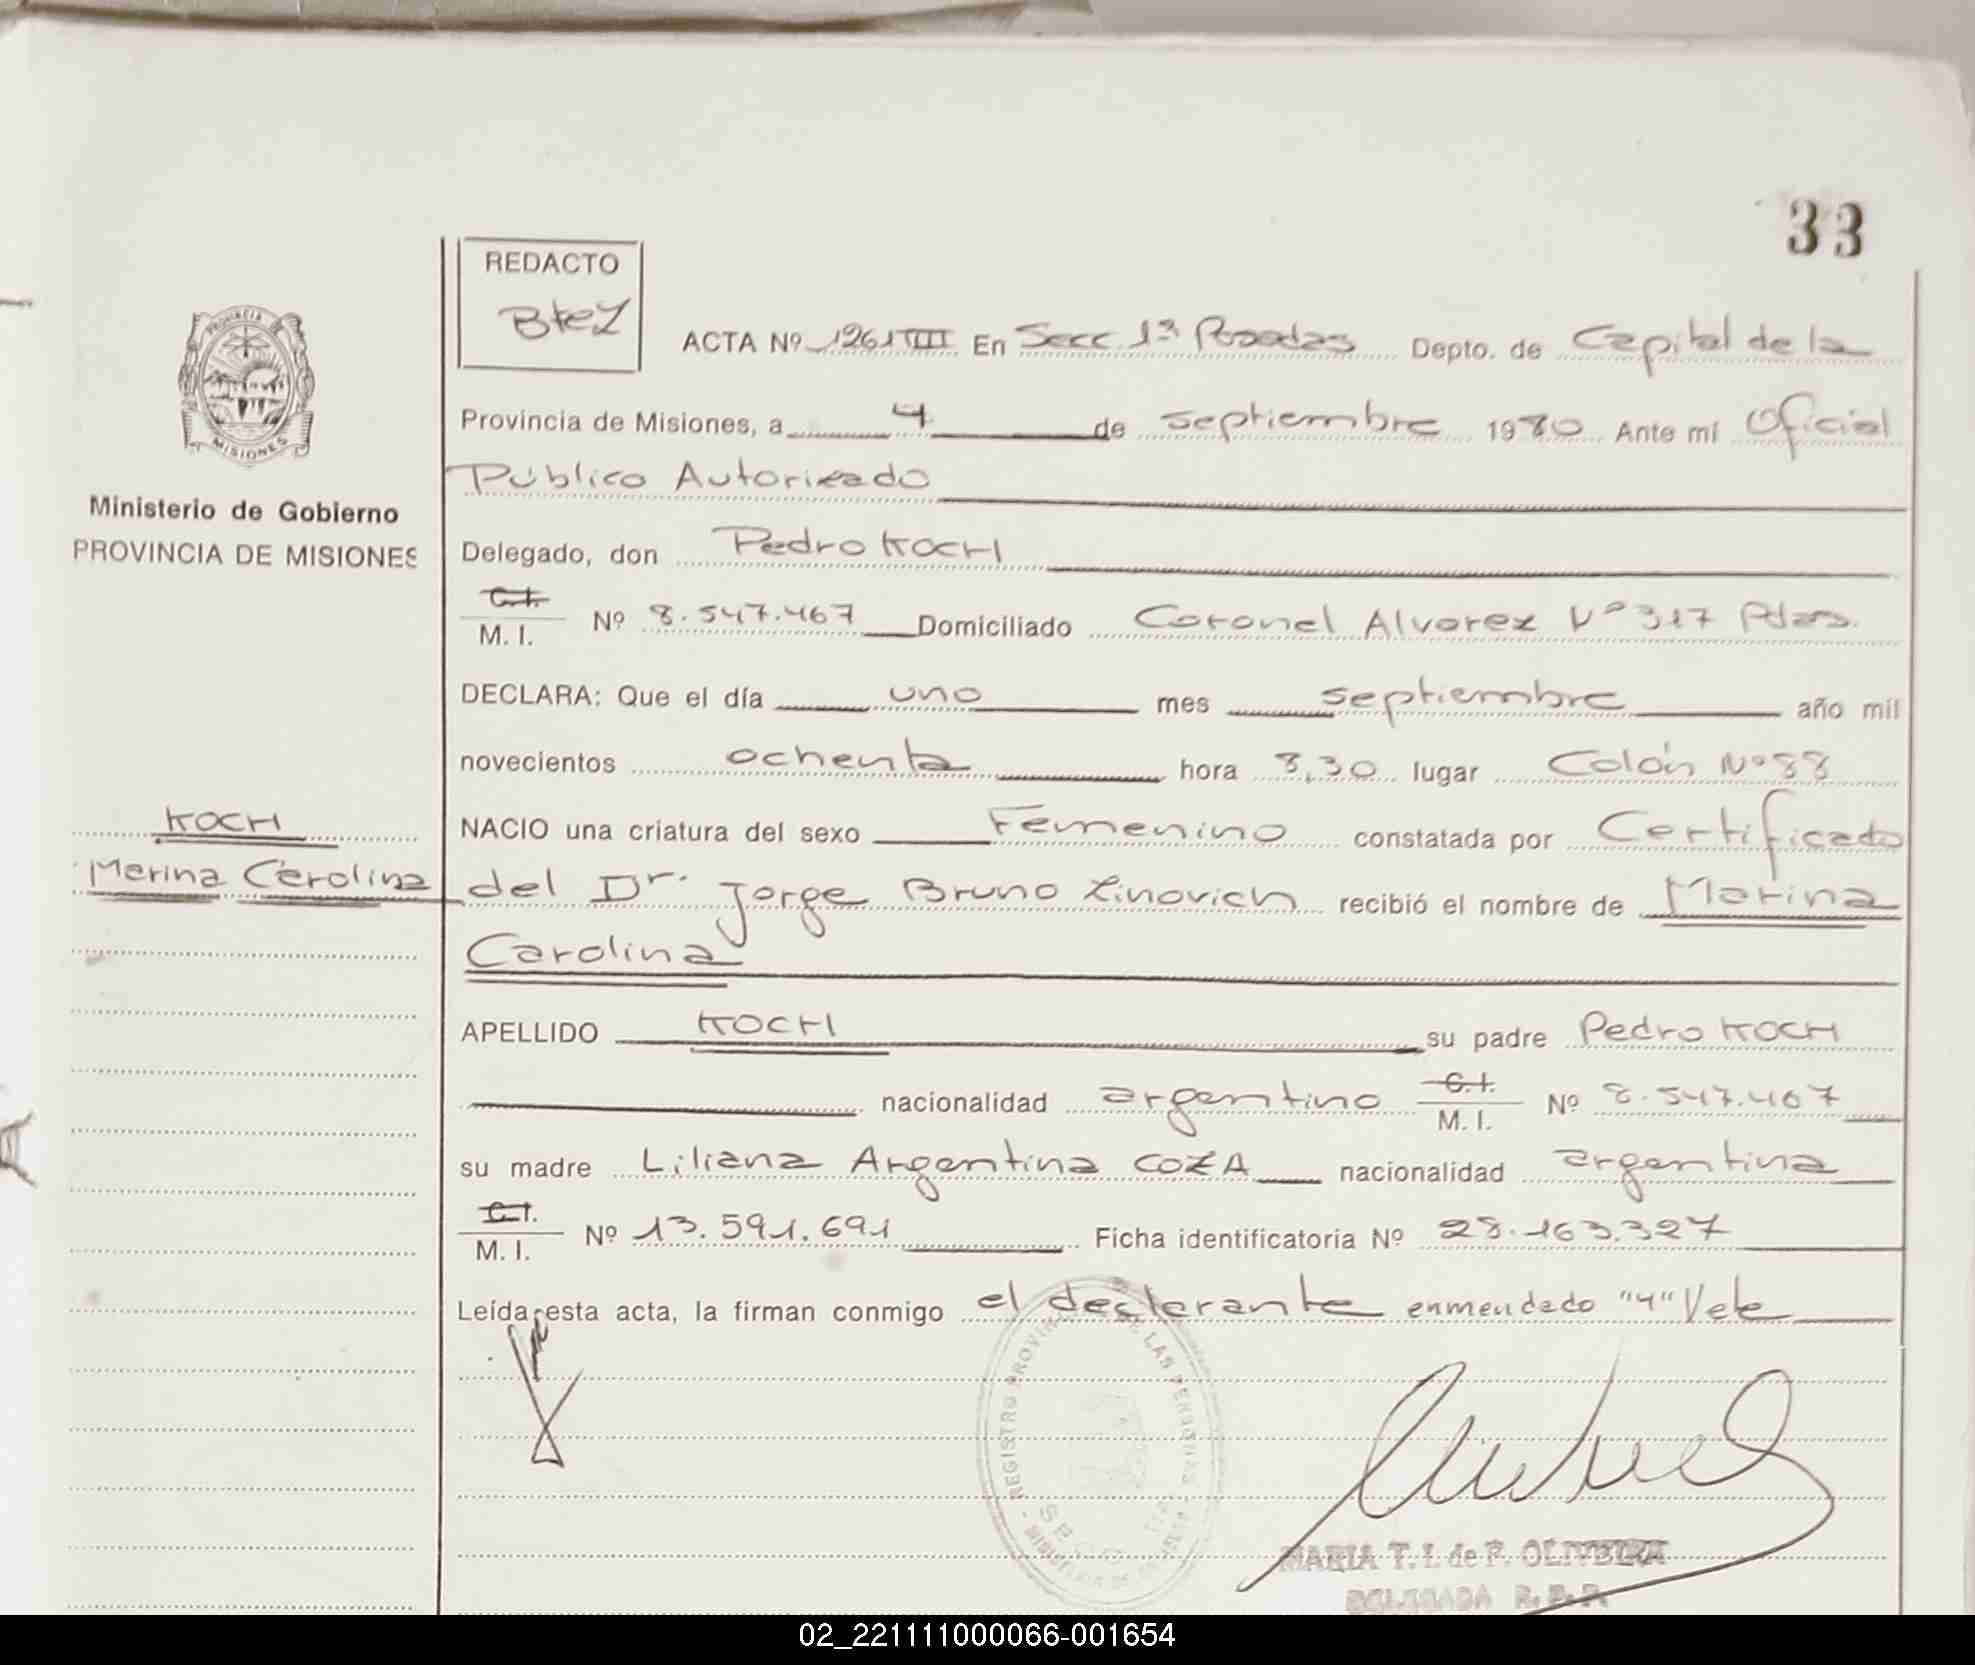 33
REDACTO
Btez
ACTA Nº 1261 III En Secc. 1ª Posadas Depto. de Capital de la
Provincia de Misiones, a 4 de septiembre 1980 Ante mí Oficial
Público Autorizado
Delegado, don Pedro KOCH
C.I.
M. I. Nº 8.547.467 Domiciliado Coronel Alvarez Nº 317 Pdas.
DECLARA: Que el día uno mes septiembre año mil
novecientos ochenta hora 8,30 lugar Colón Nº 88
NACIO una criatura del sexo Femenino constatada por Certificado
del Dr. Jorge Bruno Zinovich recibió el nombre de Marina
Carolina
APELLIDO KOCH su padre Pedro KOCH
nacionalidad argentino C.I. M. I. Nº 8.547.467
su madre Liliana Argentina COZA nacionalidad argentina
C.I.
M. I. Nº 13.591.691 Ficha identificatoria Nº 28.163.327
Leída esta acta, la firman conmigo el declarante enmendado "4" Vale
PROVINCIA DE MISIONES
Ministerio de Gobierno
PROVINCIA DE MISIONES
KOCH
Marina Carolina
REGISTRO PROVINCIAL DE LAS PERSONAS
MARIA T. I. de F. OLIVEIRA
DELEGADA R. P. P.
02_221111000066-001654